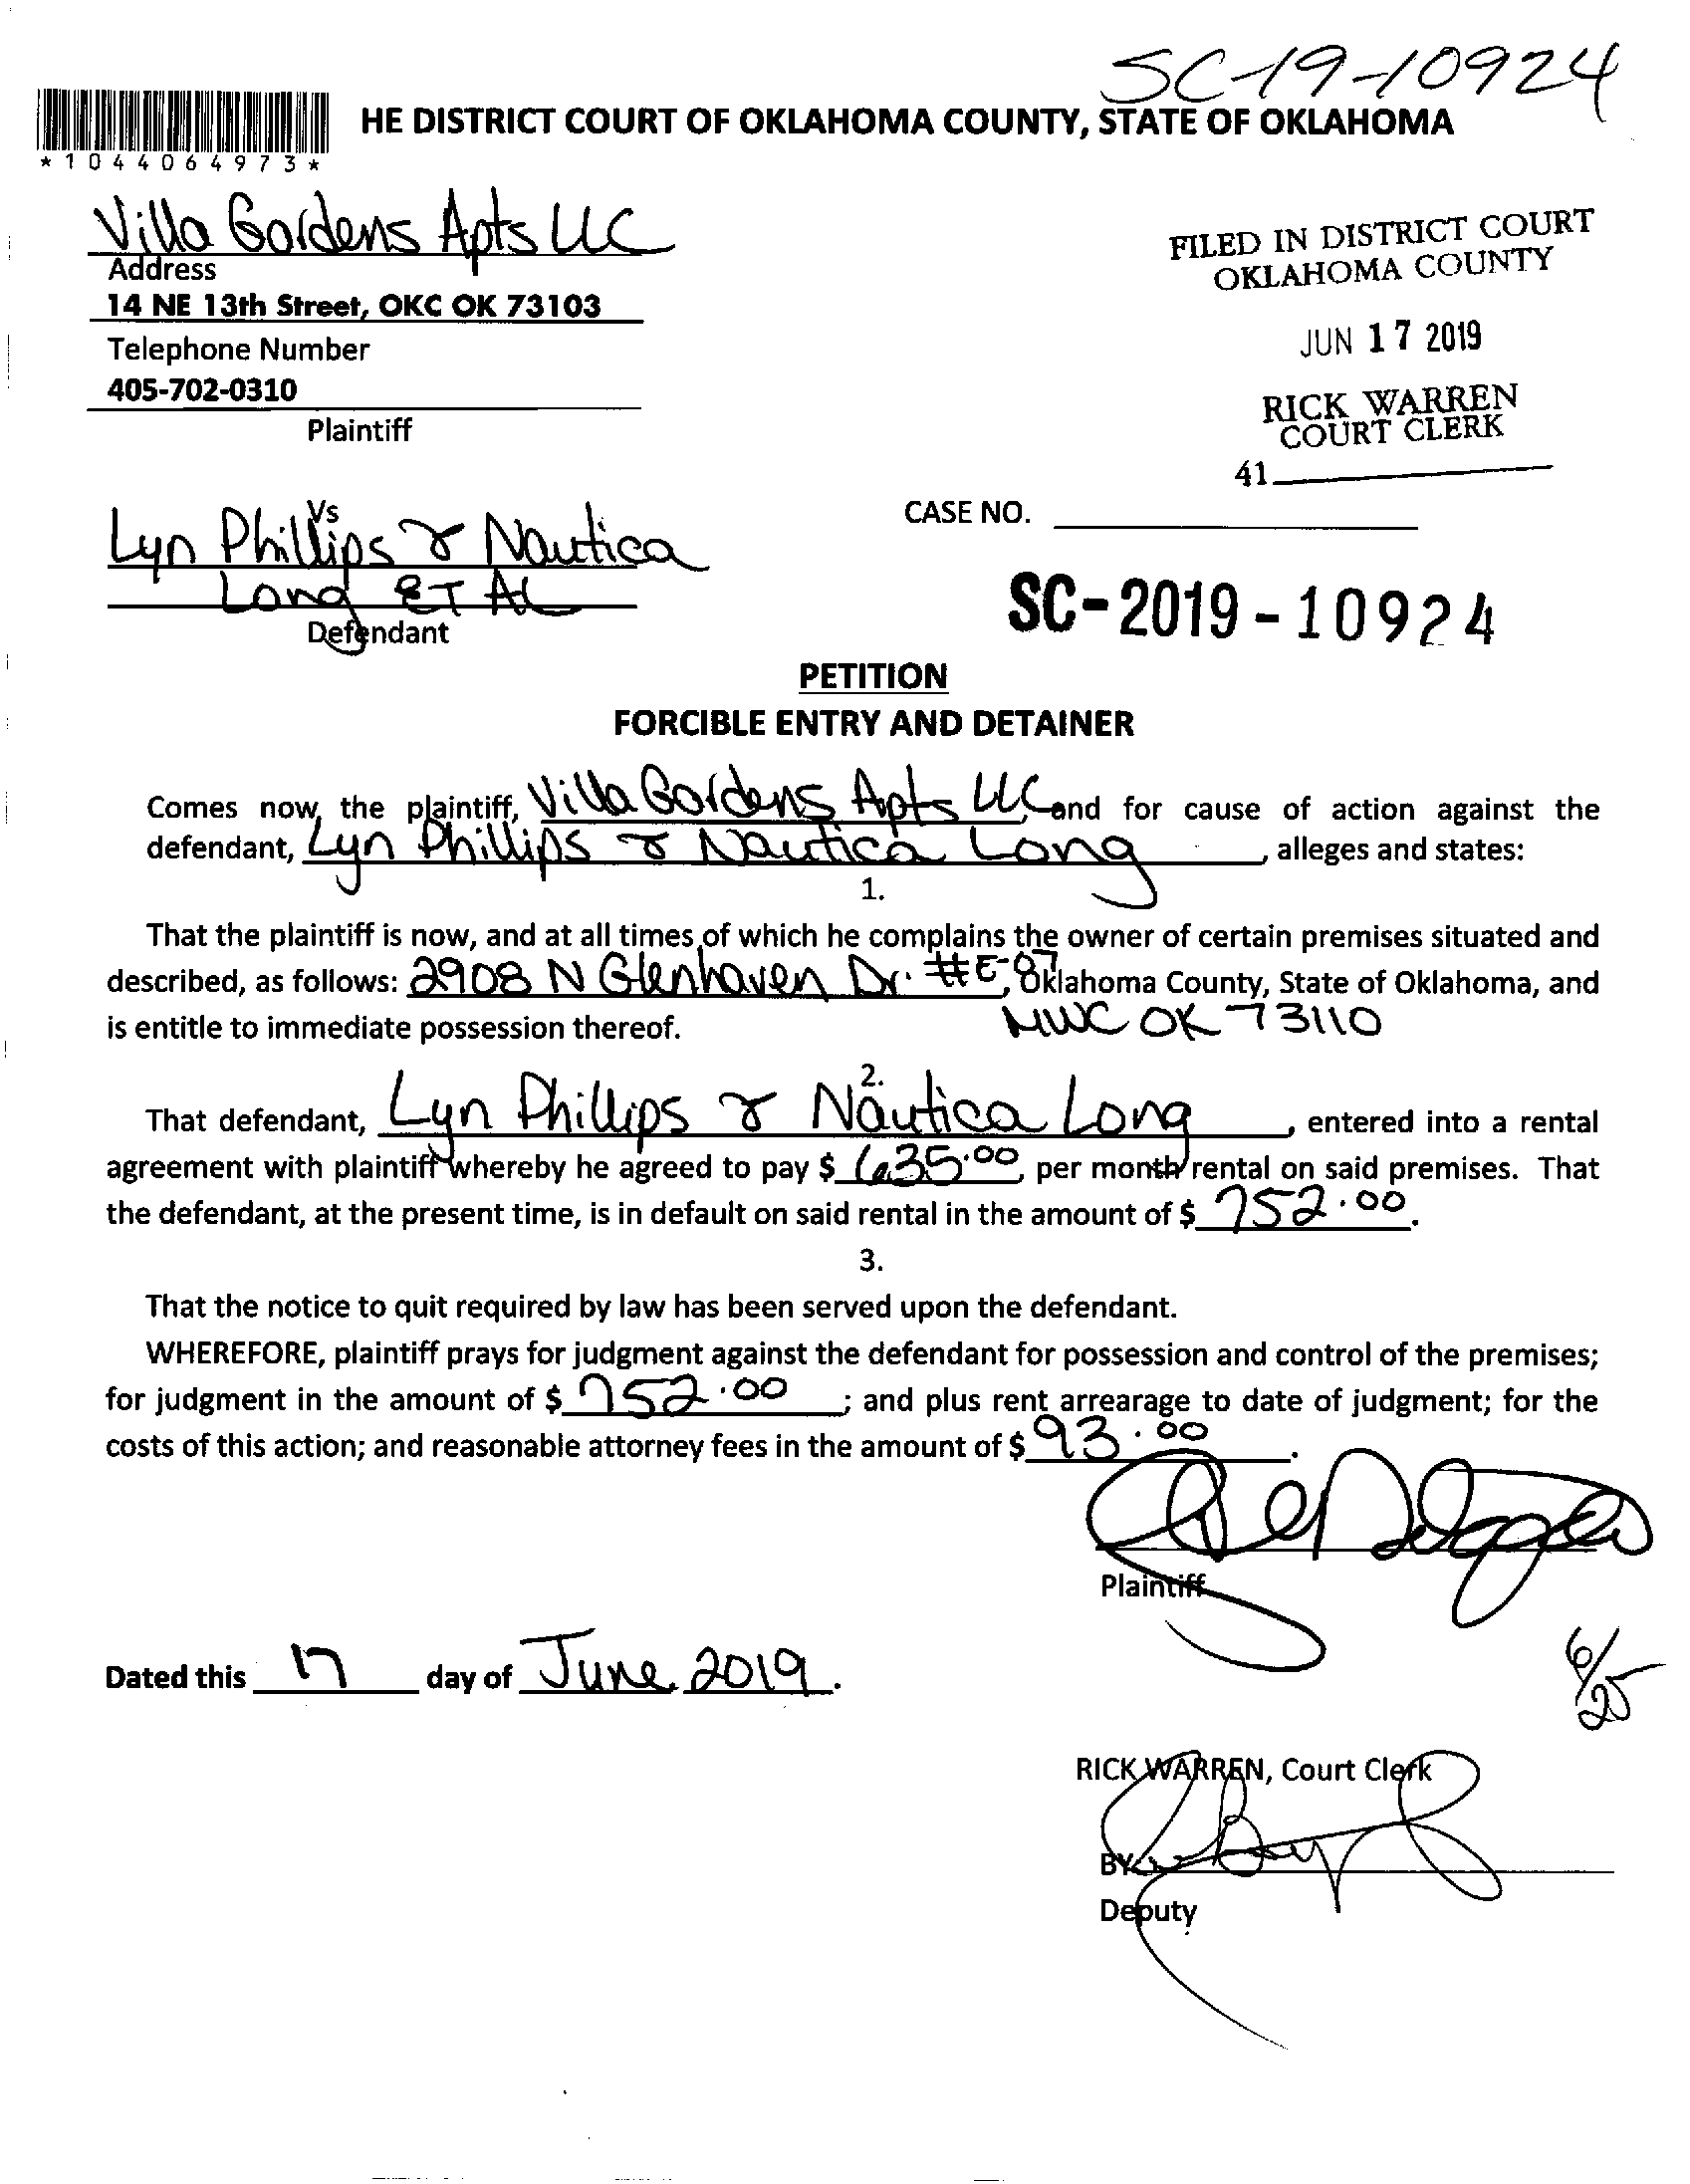 SC-19-10924
HE DISTRICT COURT OF OKLAHOMA COUNTY, STATE OF OKLAHOMA
*1044064973*
Villa Gardens Apts LLC
Address
14 NE 13th Street, OKC OK 73103
Telephone Number
405-702-0310
Plaintiff
FILED IN DISTRICT COURT
OKLAHOMA COUNTY
JUN 17 2019
RICK WARREN
COURT CLERK
41
Vs
Lyn Phillips & Nautica
Long ET AL
Defendant
CASE NO.
SC-2019-10924
PETITION
FORCIBLE ENTRY AND DETAINER
Comes now, the plaintiff, Villa Gardens Apts LLC, and for cause of action against the
defendant, Lyn Phillips & Nautica Long, alleges and states:
1.
That the plaintiff is now, and at all times of which he complains the owner of certain premises situated and
described, as follows: 2908 N Glenhaven Dr. #E-87, Oklahoma County, State of Oklahoma, and
is entitle to immediate possession thereof. MWC OK 73110
2.
That defendant, Lyn Phillips & Nautica Long, entered into a rental
agreement with plaintiff whereby he agreed to pay $ 635.00, per month rental on said premises. That
the defendant, at the present time, is in default on said rental in the amount of $ 752.00.
3.
That the notice to quit required by law has been served upon the defendant.
WHEREFORE, plaintiff prays for judgment against the defendant for possession and control of the premises;
for judgment in the amount of $ 752.00; and plus rent arrearage to date of judgment; for the
costs of this action; and reasonable attorney fees in the amount of $ 93.00.
Plaintiff
Dated this 17 day of June 2019.
6/25
RICK WARREN, Court Clerk
BY
Deputy